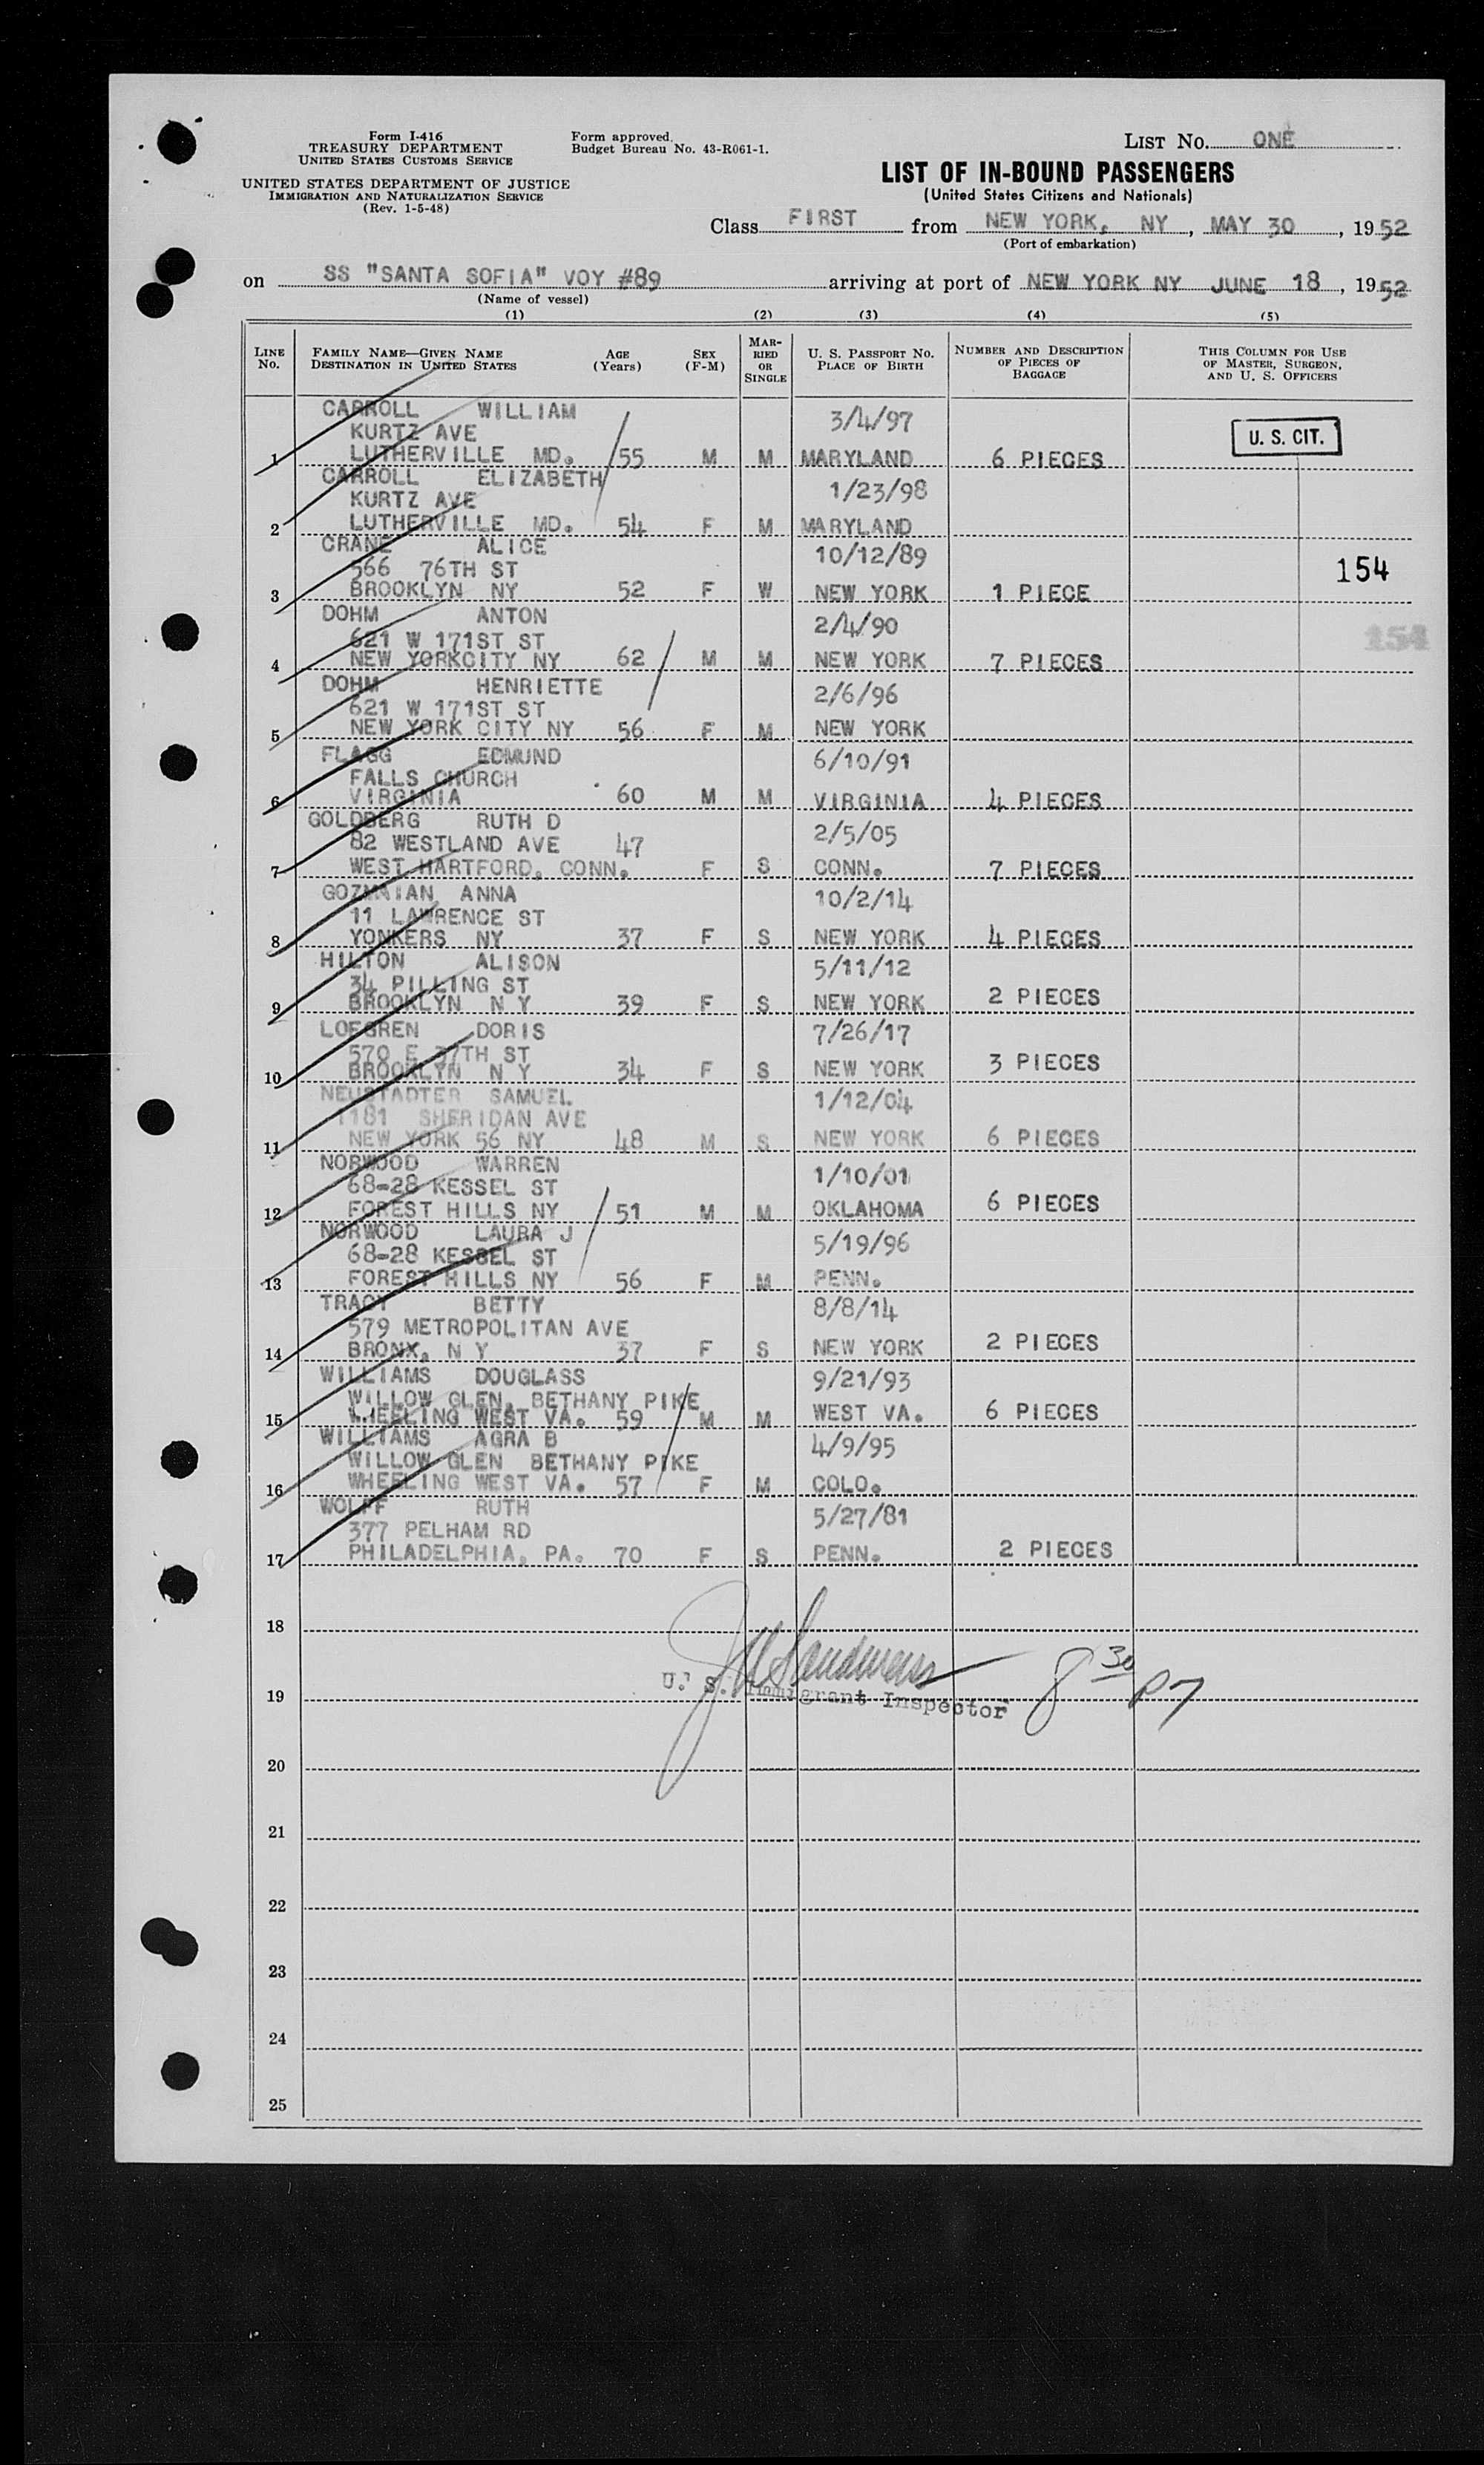 Form I-416
TREASURY DEPARTMENT
UNITED STATES CUSTOMS SERVICE
UNITED STATES DEPARTMENT OF JUSTICE
IMMIGRATION AND NATURALIZATION SERVICE
(Rev. 1-5-48)
Form approved.
Budget Bureau No. 43-R061-1.
LIST No. ONE
LIST OF IN-BOUND PASSENGERS
(United States Citizens and Nationals)
Class FIRST from NEW YORK, NY, MAY 30, 1952
(Port of embarkation)
on SS "SANTA SOFIA" VOY #89 arriving at port of NEW YORK NY JUNE 18, 1952
(Name of vessel)
(1) (2) (3) (4) (5)
LINE No. FAMILY NAME—GIVEN NAME DESTINATION IN UNITED STATES AGE (Years) SEX (F-M) MARRIED OR SINGLE U. S. PASSPORT NO. PLACE OF BIRTH NUMBER AND DESCRIPTION OF PIECES OF BAGGAGE THIS COLUMN FOR USE OF MASTER, SURGEON, AND U. S. OFFICERS
CARROLL WILLIAM 3/4/97
KURTZ AVE U. S. CIT.
1 LUTHERVILLE MD. 55 M M MARYLAND 6 PIECES
CARROLL ELIZABETH 1/23/98
KURTZ AVE
2 LUTHERVILLE MD. 54 F M MARYLAND
CRANE ALICE 10/12/89
566 76TH ST 154
3 BROOKLYN NY 52 F W NEW YORK 1 PIECE
DOHM ANTON 2/4/90
621 W 171ST ST 154
4 NEW YORKCITY NY 62 M M NEW YORK 7 PIECES
DOHM HENRIETTE 2/6/96
621 W 171ST ST
5 NEW YORK CITY NY 56 F M NEW YORK
FLAGG EDMUND 6/10/91
FALLS CHURCH
6 VIRGINIA 60 M M VIRGINIA 4 PIECES
GOLDBERG RUTH D 2/5/05
82 WESTLAND AVE 47
7 WEST HARTFORD, CONN. F S CONN. 7 PIECES
GOZMAIAN ANNA 10/2/14
11 LAWRENCE ST
8 YONKERS NY 37 F S NEW YORK 4 PIECES
HILTON ALISON 5/11/12
34 PILLING ST
9 BROOKLYN N Y 39 F S NEW YORK 2 PIECES
LOFGREN DORIS 7/26/17
570 E 37TH ST
10 BROOKLYN N Y 34 F S NEW YORK 3 PIECES
NEUSTADTER SAMUEL 1/12/04
1181 SHERIDAN AVE
11 NEW YORK 56 NY 48 M S NEW YORK 6 PIECES
NORWOOD WARREN 1/10/01
68-28 KESSEL ST
12 FOREST HILLS NY 51 M M OKLAHOMA 6 PIECES
NORWOOD LAURA J 5/19/96
68-28 KESSEL ST
13 FOREST HILLS NY 56 F M PENN.
TRACY BETTY 8/8/14
579 METROPOLITAN AVE
14 BRONX, N Y 37 F S NEW YORK 2 PIECES
WILLIAMS DOUGLASS 9/21/93
WILLOW GLEN, BETHANY PIKE
15 WHEELING WEST VA. 59 M M WEST VA. 6 PIECES
WILLIAMS AGRA B 4/9/95
WILLOW GLEN BETHANY PIKE
16 WHEELING WEST VA. 57 F M COLO.
WOLFF RUTH 5/27/81
377 PELHAM RD
17 PHILADELPHIA, PA. 70 F S PENN. 2 PIECES
18
19 U. S. Immigrant Inspector 8 30
20
21
22
23
24
25